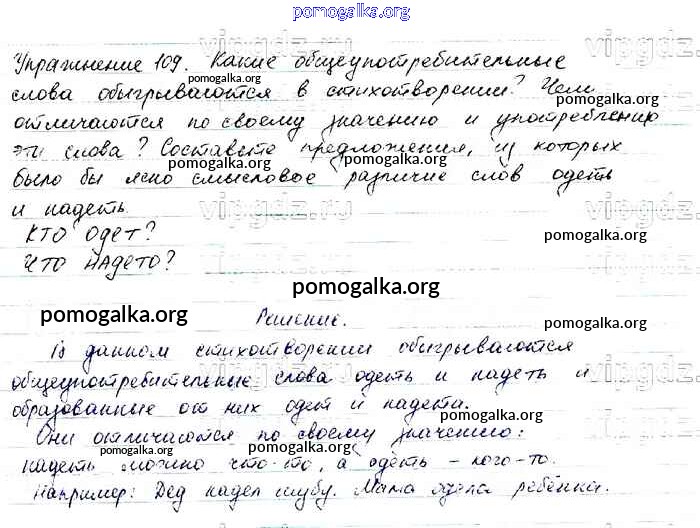 pomogalka.org
Упражнение 109. Какие общеупотребительные
слова обыгрываются в стихотворении? Чем
отличаются по своему значению и употреблению
эти слова? Составьте предложения, из которых
было бы ясно смысловое различие слов одеть
и надеть.
КТО ОДЕТ?
ЧТО НАДЕТО?
Решение.
В данном стихотворении обыгрываются
общеупотребительные слова одеть и надеть и
образованные от них одет и надета.
Они отличаются по своему значению:
надеть можно что-то, а одеть – кого-то.
Например: Дед надел шубу. Мама одела ребёнка.
vipgdz.ru
pomogalka.org
pomogalka.org
pomogalka.org
pomogalka.org
pomogalka.org
pomogalka.org
pomogalka.org
pomogalka.org
pomogalka.org
pomogalka.org
pomogalka.org
pomogalka.org